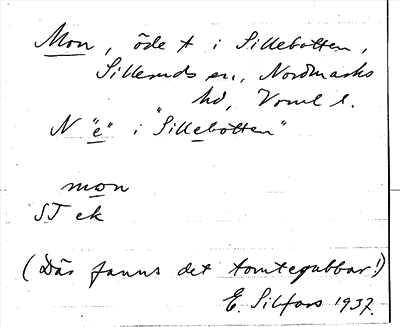 Mon, öde t i Sillebotten,
Silleruds sn., Nordmarks
hd, Vrml l.
N "e" i "Sillebotten"
mon
ST ek
(Där fanns det tomtegubbar!)
E. Silfors 1937.